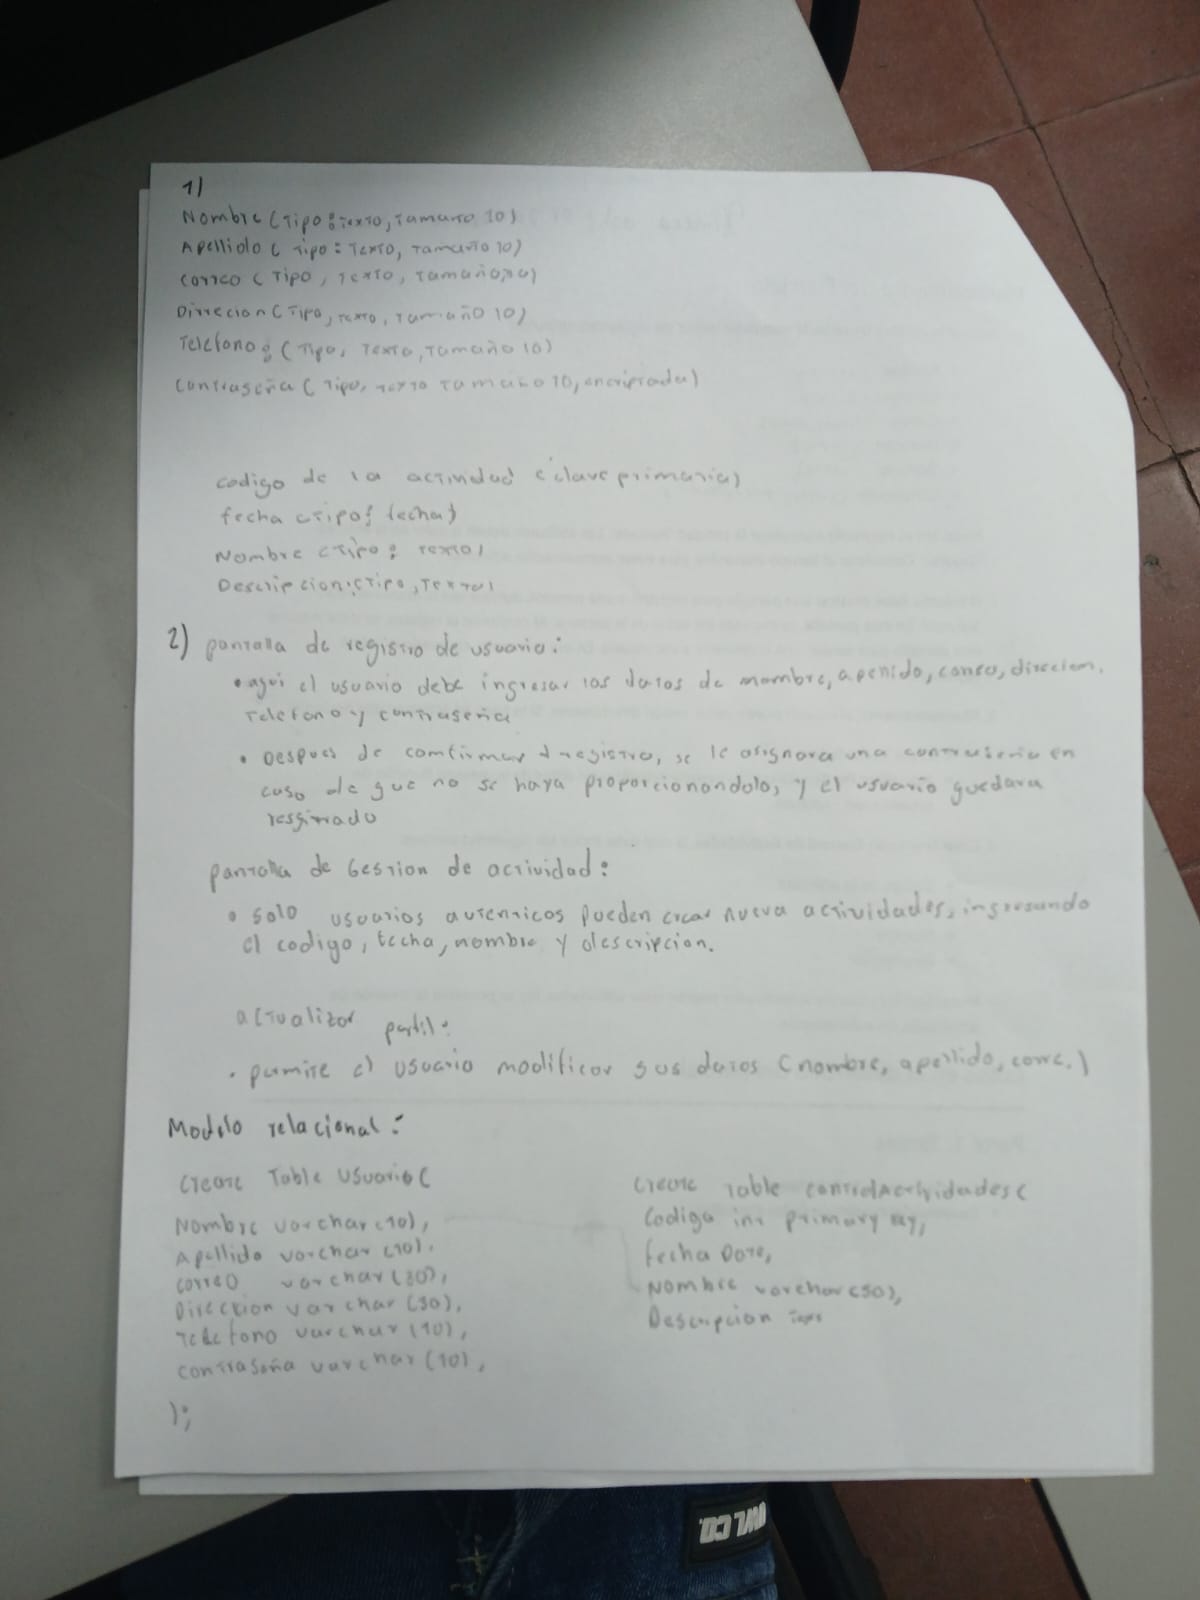 1)
Nombre (Tipo: Texto, Tamaño 10)
Apellido ( Tipo: Texto, Tamaño 10)
correo ( Tipo, Texto, Tamaño,30)
Direccion ( Tipo, Texto, Tamaño 10)
Telefono: (Tipo, Texto, Tamaño 10)
Contraseña ( Tipo, Texto Tamaño 10, encriptada)
codigo de la actividad (clave primaria)
fecha (Tipo: fecha)
Nombre (Tipo: Texto)
Descripcion: (Tipo, Texto)
2) pantalla de registro de usuario:
• aqui el usuario debe ingresar los datos de nombre, apellido, correo, direcion,
Telefono y contraseña
• Despues de comfirmar el registro, se le asignara una contraseña en
caso de que no se haya proporcionondolo, y el usuario quedara
resgitrado
pantalla de Gestion de actividad:
• solo usuarios autenticos pueden crear nueva actividades, ingresando
el codigo, fecha, nombre y descripcion.
actualizar perfil:
• permite el usuario modificar sus datos (nombre, apellido, corre.)
Modelo relacional:
Create Table Usuario (
Nombre varchar (10),
Apellido varchar (10).
correo varchar (30),
Direccion varchar (30),
Telefono varchar (10),
contraseña varchar (10),
);
Create Table controlActividades (
Codigo int primary ey,
fecha Date,
Nombre varchar (50),
Descripcion
OWL CO.